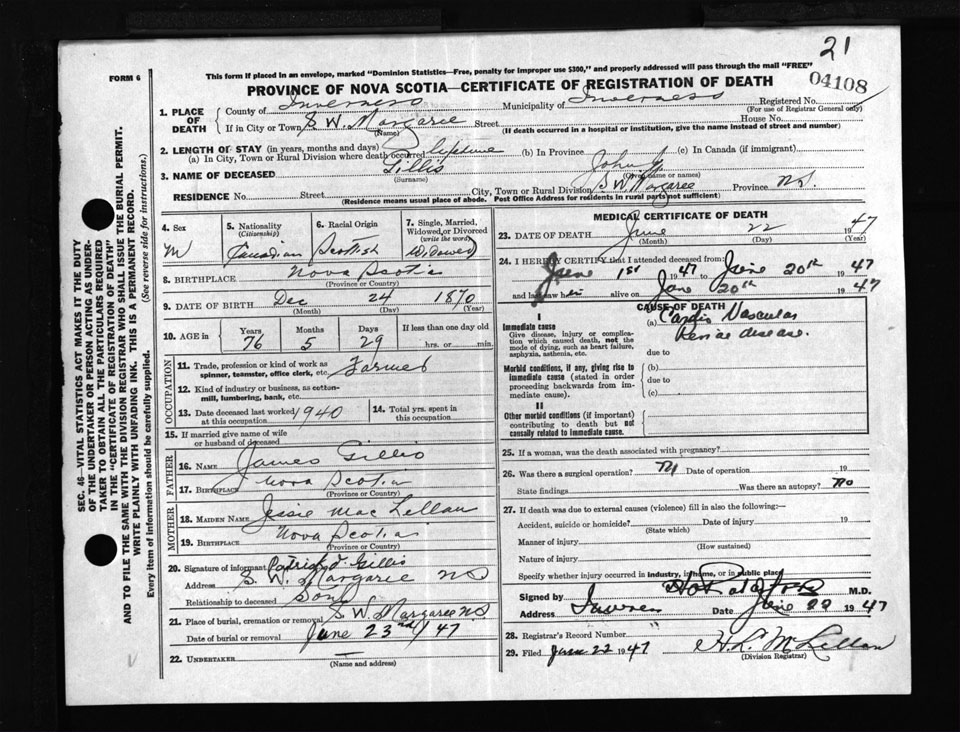 21
FORM 6
This form if placed in an envelope, marked "Dominion Statistics—Free, penalty for improper use $300," and properly addressed will pass through the mail "FREE"
04108
PROVINCE OF NOVA SCOTIA—CERTIFICATE OF REGISTRATION OF DEATH
SEC. 46—VITAL STATISTICS ACT MAKES IT THE DUTY
OF THE UNDERTAKER OR PERSON ACTING AS UNDER-
TAKER TO OBTAIN ALL THE PARTICULARS REQUIRED
IN THE "CERTIFICATE OF REGISTRATION OF DEATH"
AND TO FILE THE SAME WITH THE DIVISION REGISTRAR WHO SHALL ISSUE THE BURIAL PERMIT.
WRITE PLAINLY WITH UNFADING INK. THIS IS A PERMANENT RECORD.
Every item of information should be carefully supplied. (See reverse side for instructions.)
1. PLACE OF DEATH
County of Inverness Municipality of Inverness Registered No.
(For use of Registrar General only)
If in City or Town S W. Margaree Street House No.
(Name) (If death occurred in a hospital or institution, give the name instead of street and number)
2. LENGTH OF STAY (in years, months and days)
(a) In City, Town or Rural Division where death occurred lifetime (b) In Province (c) In Canada (if immigrant)
3. NAME OF DECEASED Gillis John J.
(Surname) (Given name or names)
RESIDENCE No. Street City, Town or Rural Division S W. Margaree Province N.S.
(Residence means usual place of abode. Post Office Address for residents in rural parts not sufficient)
4. Sex
M
5. Nationality
(Citizenship)
Canadian
6. Racial Origin
Scottish
7. Single, Married, Widowed or Divorced
(write the word)
Widowed
8. BIRTHPLACE Nova Scotia
(Province or Country)
9. DATE OF BIRTH Dec 24 1870
(Month) (Day) (Year)
10. AGE in Years Months Days If less than one day old
76 5 29 hrs. or min.
OCCUPATION
11. Trade, profession or kind of work as
spinner, teamster, office clerk, etc. Farmer
12. Kind of industry or business, as cotton-
mill, lumbering, bank, etc.
13. Date deceased last worked
at this occupation 1940
14. Total yrs. spent in
this occupation
15. If married give name of wife
or husband of deceased
FATHER
16. NAME James Gillis
17. BIRTHPLACE Nova Scotia
(Province or Country)
MOTHER
18. MAIDEN NAME Jessie MacLellan
19. BIRTHPLACE Nova Scotia
(Province or Country)
20. Signature of informant Patrick J. Gillis
Address S. W. Margaree NS
Relationship to deceased Son
21. Place of burial, cremation or removal S W. Margaree NS
Date of burial or removal June 23rd / 47
22. UNDERTAKER
(Name and address)
MEDICAL CERTIFICATE OF DEATH
23. DATE OF DEATH June 22 1947
(Month) (Day) (Year)
24. I HEREBY CERTIFY that I attended deceased from:
June 1st 1947 to June 20th 1947
and last saw him alive on June 20th 1947
CAUSE OF DEATH
I
Immediate cause
Give disease, injury or complica-
tion which caused death, not the
mode of dying, such as heart failure,
asphyxia, asthenia, etc.
(a) Cardio Vascular
Renal disease.
due to
Morbid conditions, if any, giving rise to
immediate cause (stated in order
proceeding backwards from im-
mediate cause).
(b)
due to
(c)
II
Other morbid conditions (if important)
contributing to death but not
causally related to immediate cause.
25. If a woman, was the death associated with pregnancy?
26. Was there a surgical operation? No Date of operation 19
State findings Was there an autopsy? No
27. If death was due to external causes (violence) fill in also the following:
Accident, suicide or homicide? Date of injury 19
(State which)
Manner of injury
(How sustained)
Nature of injury
Specify whether injury occurred in industry, in home, or in public place
Signed by M.D.
Address Date June 22 1947
28. Registrar's Record Number "
29. Filed June 22 1947 H. L. McLellan
(Division Registrar)